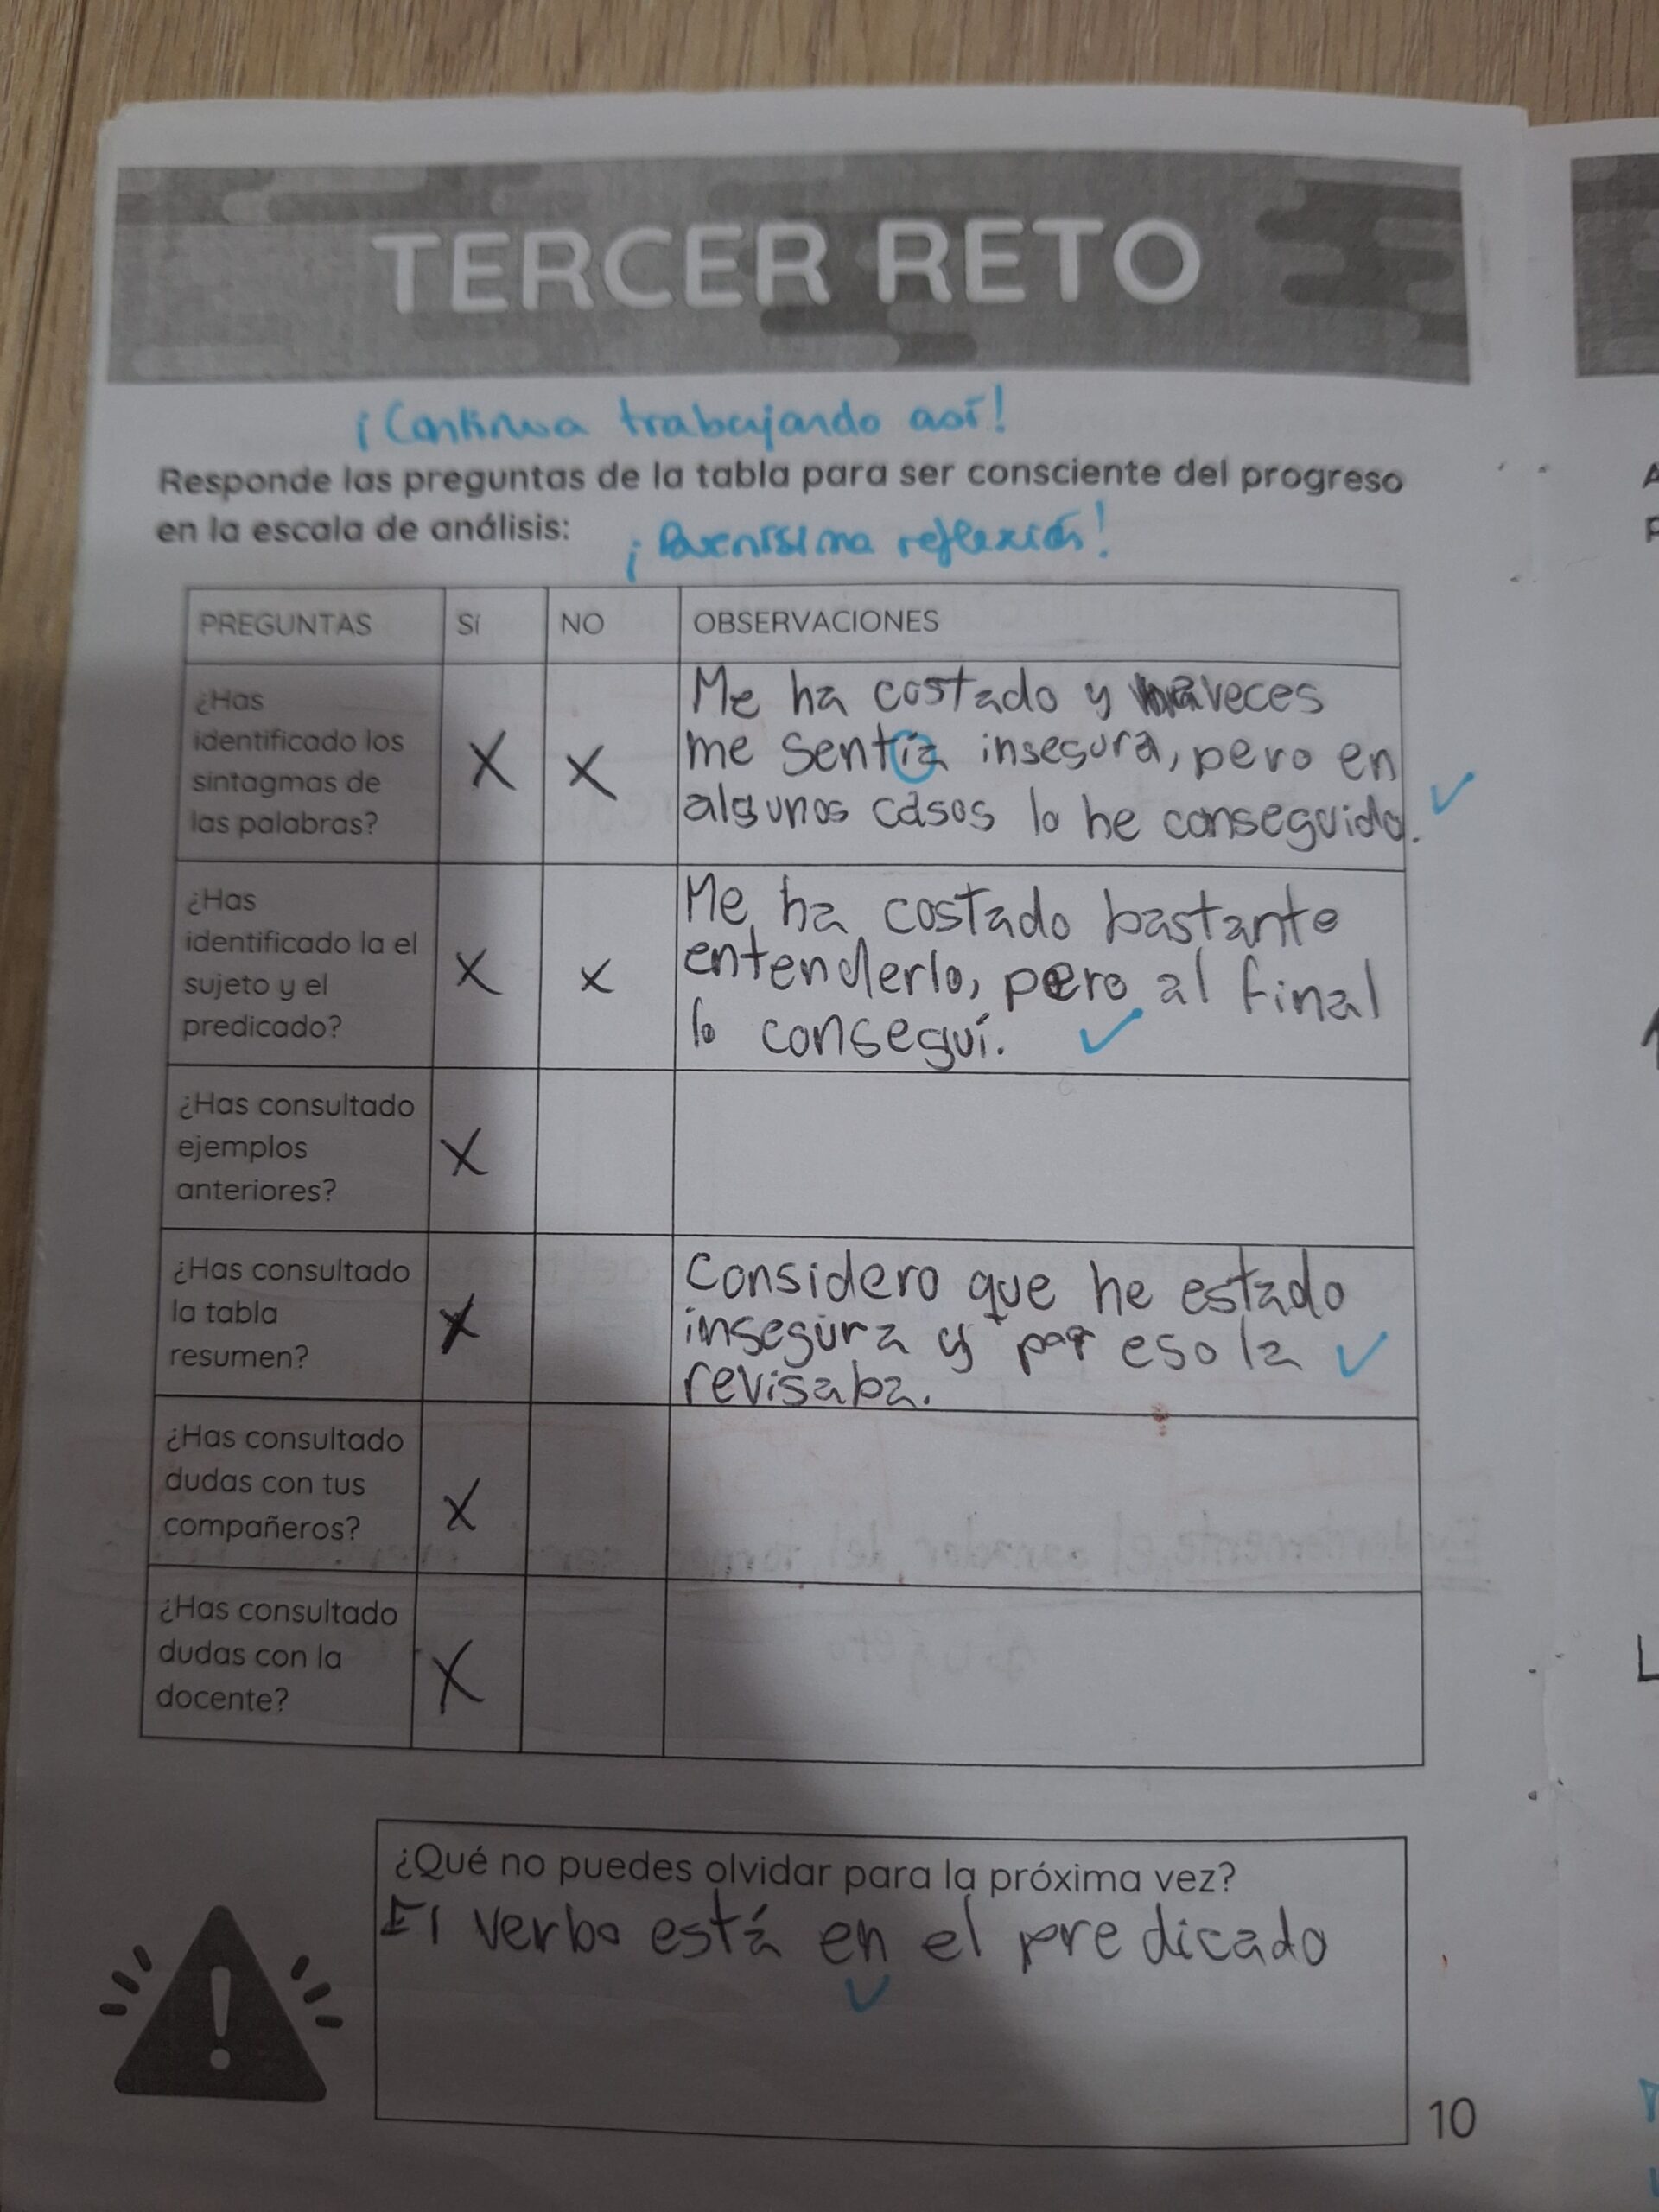 TERCER RETO
¡Continua trabajando así!
Responde las preguntas de la tabla para ser consciente del progreso
en la escala de análisis:
¡Buenísima reflexión!
PREGUNTAS SÍ NO OBSERVACIONES
¿Has
identificado los
sintagmas de
las palabras?
X X
Me ha costado y a veces
me sentía insegura, pero en
algunos casos lo he conseguido.
¿Has
identificado la el
sujeto y el
predicado?
X X
Me ha costado bastante
entenderlo, pero al final
lo conseguí.
¿Has consultado
ejemplos
anteriores?
X
¿Has consultado
la tabla
resumen?
X
Considero que he estado
insegura y por eso la
revisaba.
¿Has consultado
dudas con tus
compañeros?
X
¿Has consultado
dudas con la
docente?
X
¿Qué no puedes olvidar para la próxima vez?
El verbo está en el predicado
10